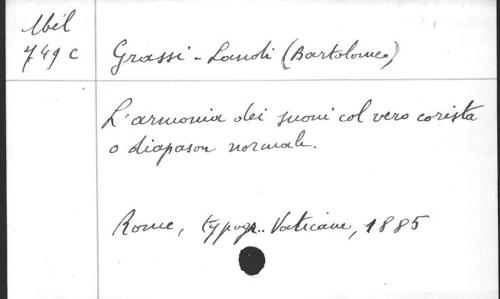 Mél
749 c
Grassi-Landi (Bartolomeo)
L'armonia dei suoni col vero corista
o diapason normale.
Rome, typogr. Vaticane, 1885